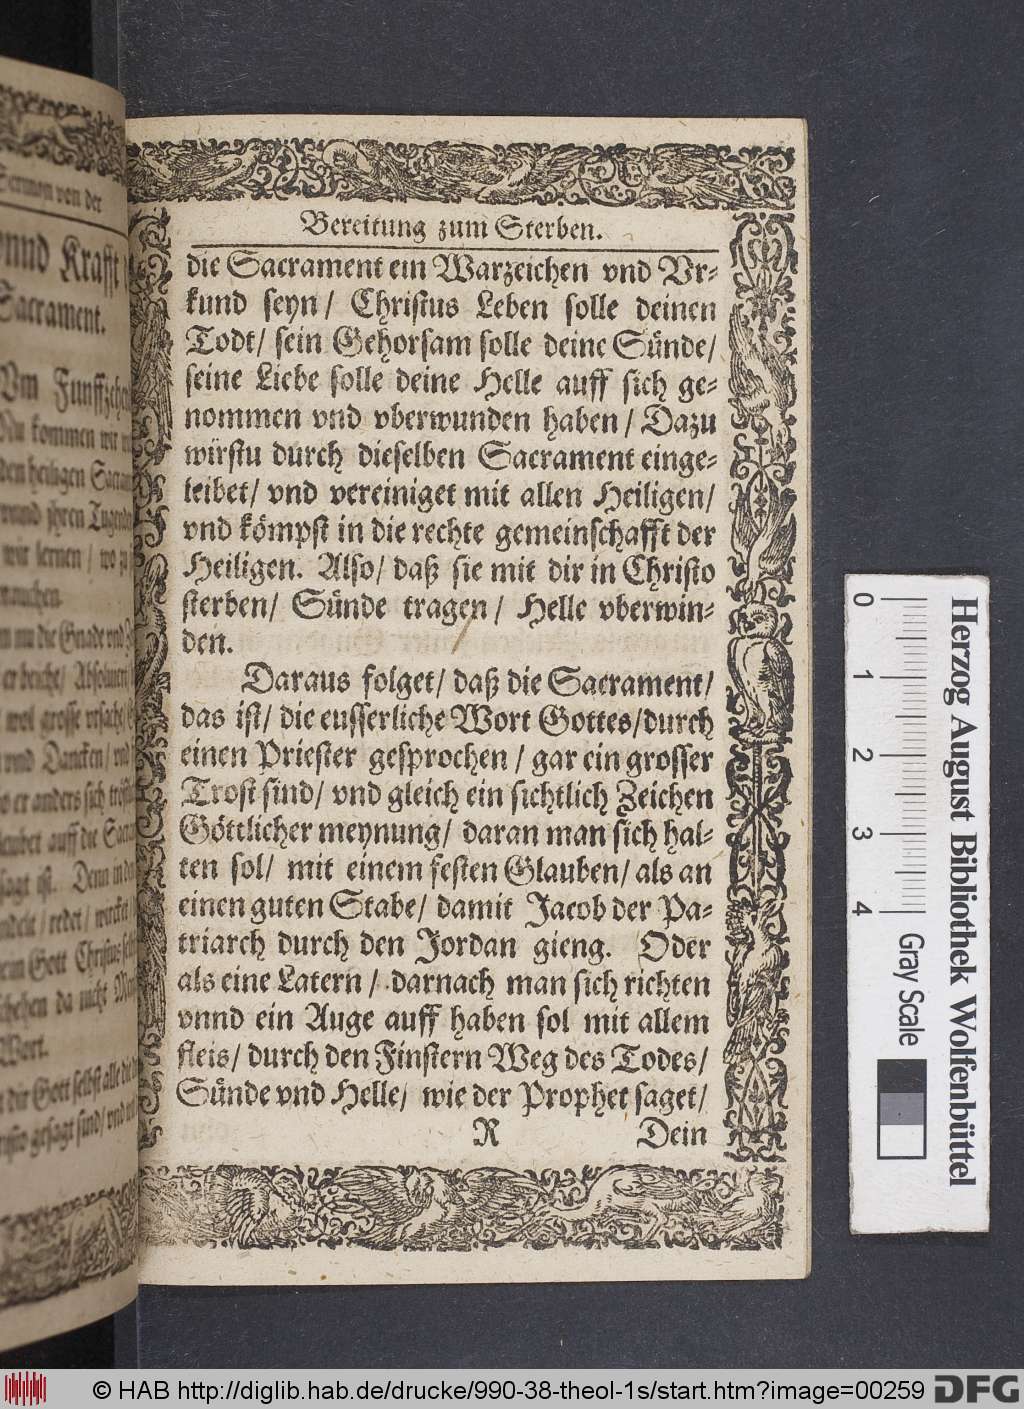 Sermon von der
vnnd Krafft
Sacrament.
Nu kommen wir
den heiligen
wir lernen / wo zu
Bereitung zum Sterben.
die Sacrament ein Warzeichen vnd Vr⸗
kund seyn / Christus Leben solle deinen
Todt / sein Gehorsam solle deine Sünde /
seine Liebe solle deine Helle auff sich ge⸗
nommen vnd vberwunden haben / Dazu
wirstu durch dieselben Sacrament einge⸗
leibet / vnd vereiniget mit allen Heiligen /
vnd kömpst in die rechte gemeinschafft der
Heiligen. Also / daß sie mit dir in Christo
sterben / Sünde tragen / Helle vberwin⸗
den.
Daraus folget / daß die Sacrament /
das ist / die eusserliche Wort Gottes / durch
einen Priester gesprochen / gar ein grosser
Trost sind / vnd gleich ein sichtlich Zeichen
Göttlicher meynung / daran man sich hal⸗
ten sol / mit einem festen Glauben / als an
einen guten Stabe / damit Jacob der Pa⸗
triarch durch den Jordan gieng. Oder
als eine Latern / darnach man sich richten
vnnd ein Auge auff haben sol mit allem
fleis / durch den Finstern Weg des Todes /
Sünde vnd Helle / wie der Prophet saget /
R Dein
0 1 2 3 4
Gray Scale
Herzog August Bibliothek Wolfenbüttel
© HAB http://diglib.hab.de/drucke/990-38-theol-1s/start.htm?image=00259
DFG